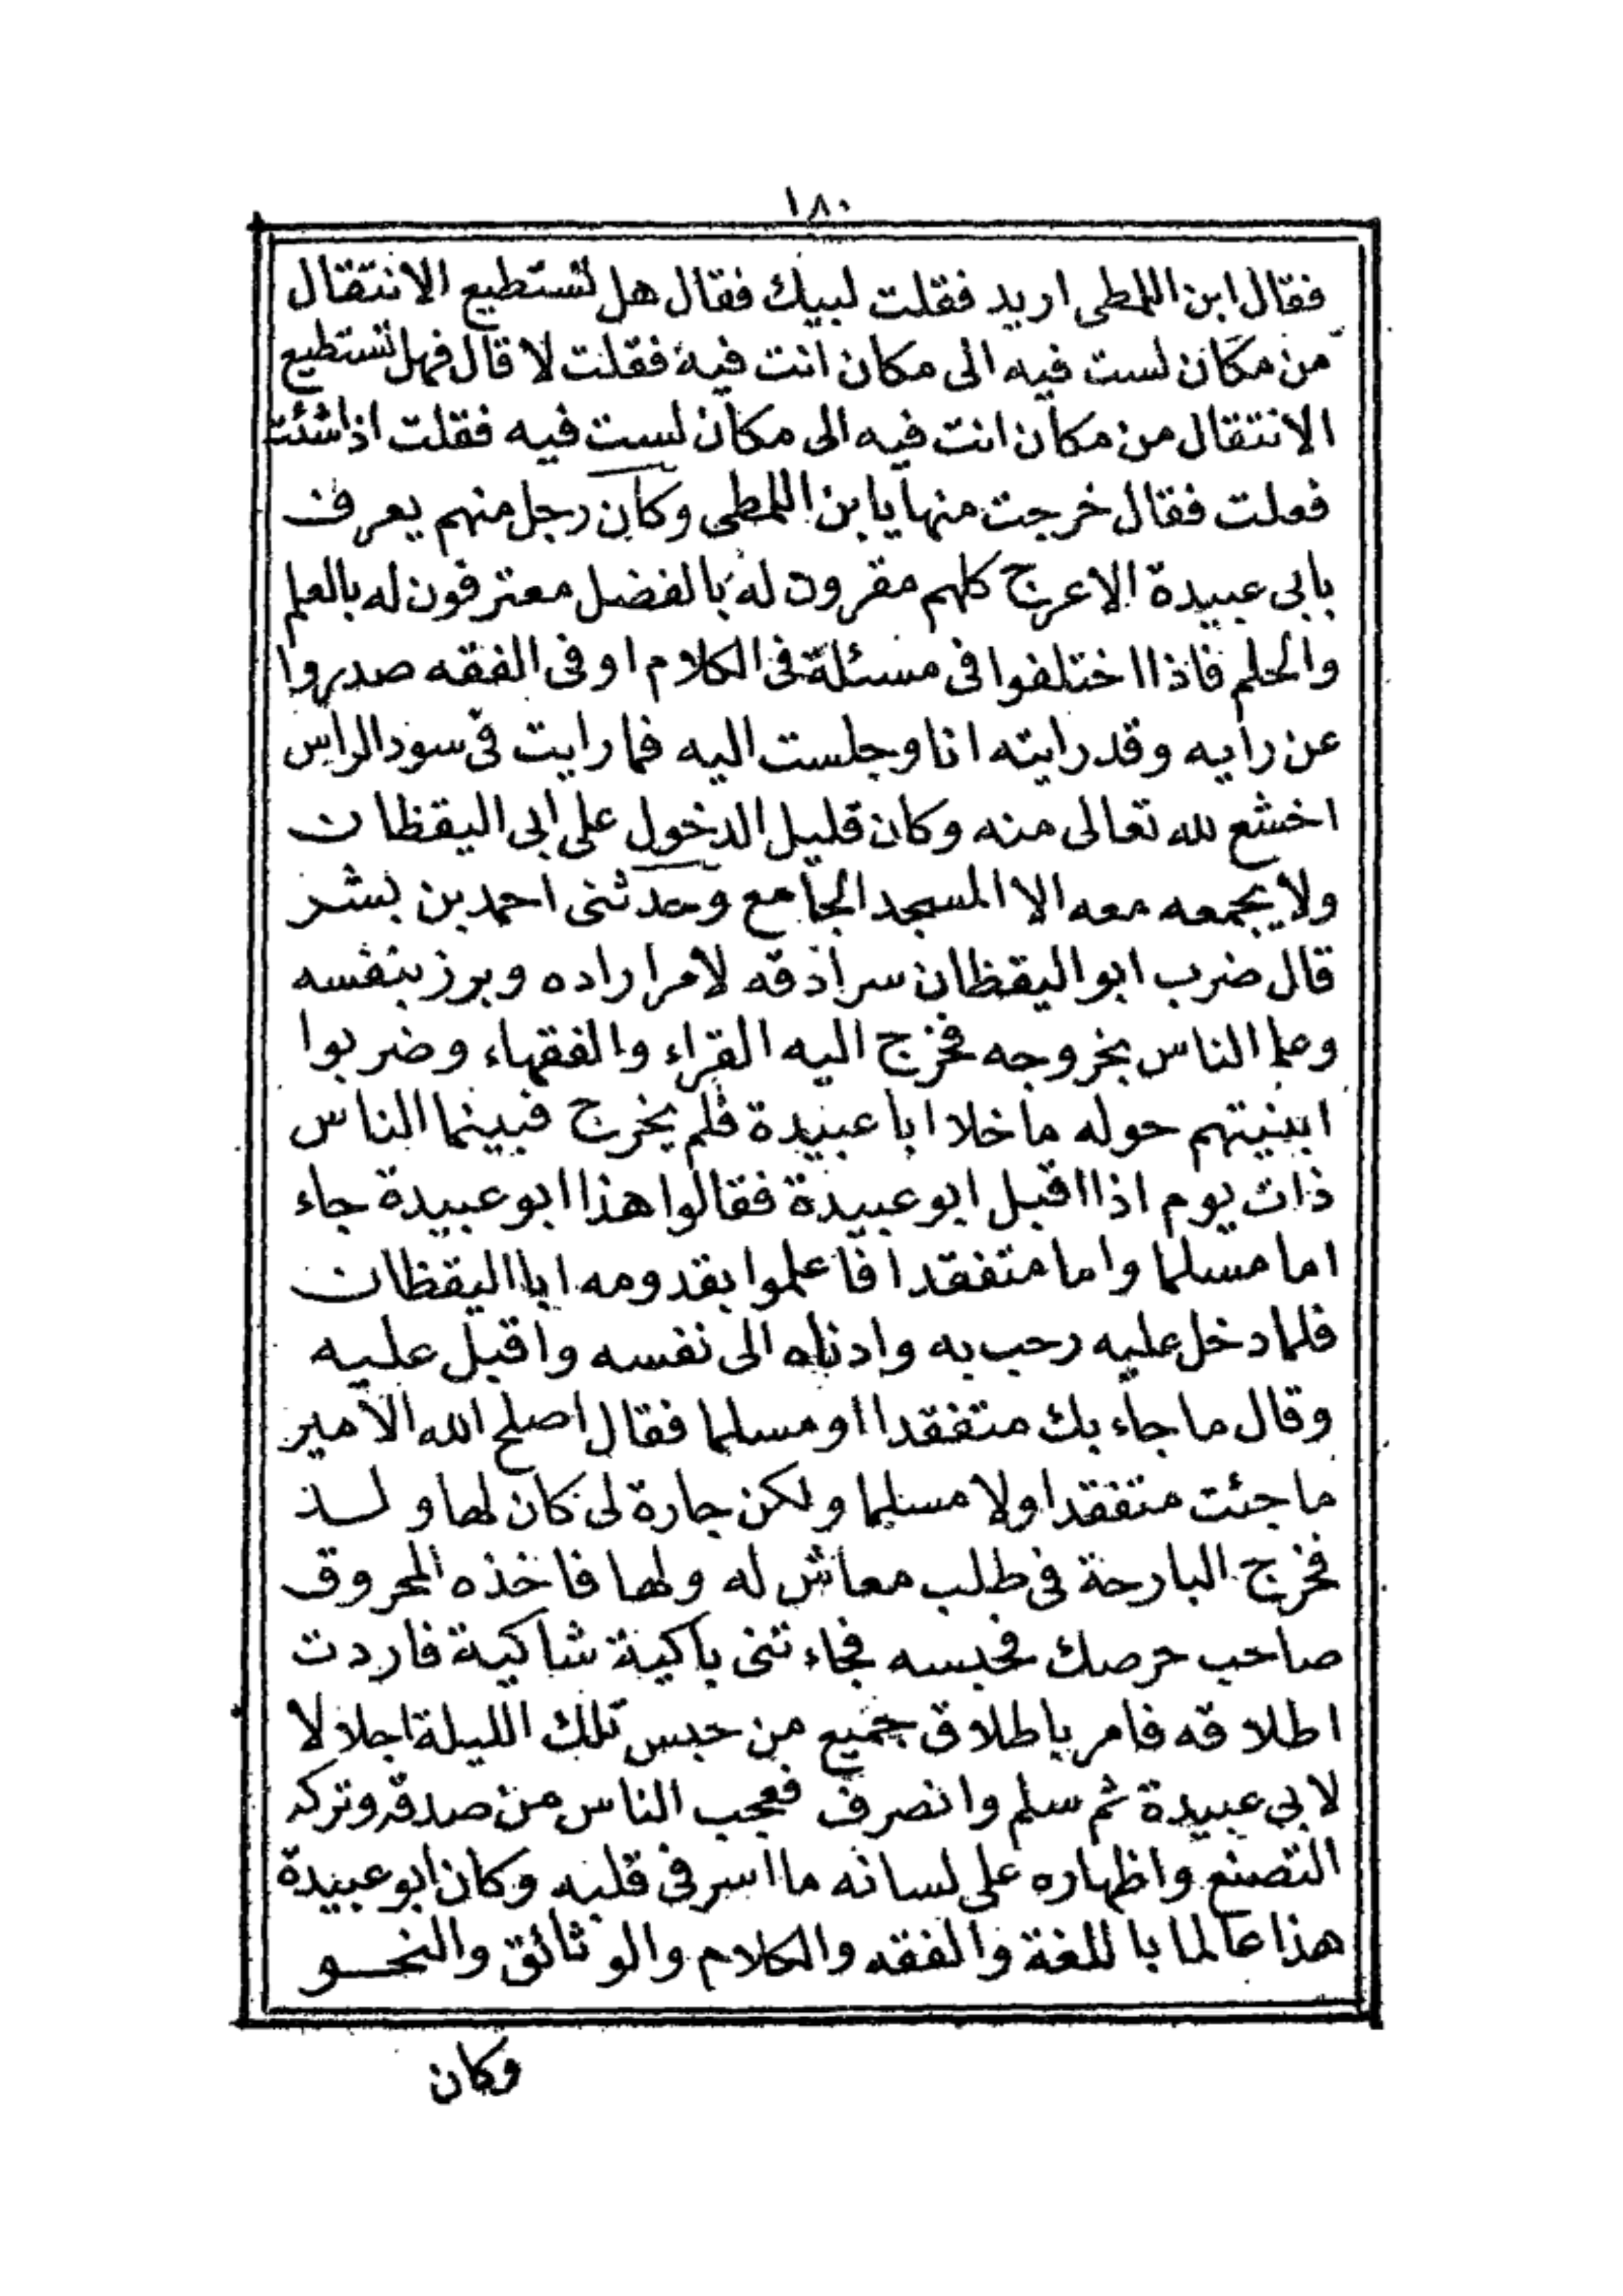 ١٨٠
فقال ابن اللمطى اريد فقلت لبيك فقال هل تستطيع الانتقال
من مكان لست فيه الى مكان انت فيه فقلت لا قال فهل تستطيع
الانتقال من مكان انت فيه الى مكان لست فيه فقلت اذا شئت
فعلت فقال خرجت منها يا بن اللمطى وكان رجل منهم يعرف
بابى عبيدة الاعرج كلهم مقرون له بالفضل معترفون له بالعلم
والحلم فاذا اختلفوا فى مسئلة فى الكلام او فى الفقه صدروا
عن رايه وقد رايته انا وجلست اليه فما رايت فى سود الراس
اخشع لله تعالى منه وكان قليل الدخول على ابى اليقظان
ولا يجمعه معه الا المسجد الجامع وحدثنى احمد بن بشر
قال ضرب ابو اليقظان سرادقه لامر اراده وبرز بنفسه
وعلم الناس بخروجه فخرج اليه القراء والفقهاء وضربوا
ابنيتهم حوله ما خلا ابا عبيدة فلم يخرج فبينما الناس
ذات يوم اذا اقبل ابو عبيدة فقالوا هذا ابو عبيدة جاء
اما مسلما واما متفقدا فاعلموا بقدومه ابا اليقظان
فلما دخل عليه رحب به وادناه الى نفسه واقبل عليه
وقال ما جاء بك متفقدا او مسلما فقال اصلح الله الامير
ما جئت متفقدا ولا مسلما ولكن جارة لى كان لها ولد
فخرج البارحة فى طلب معاش له ولها فاخذه المحروق
صاحب حرصك فحبسه فجاءتنى باكية شاكية فاردت
اطلاقه فامر باطلاق جميع من حبس تلك الليلة اجلالا
لابى عبيدة ثم سلم وانصرف فعجب الناس من صدقه وتركه
التصنع واظهاره على لسانه ما اسر فى قلبه وكان ابو عبيدة
هذا عالما باللغة والفقه والكلام والوثائق والنحو
وكان